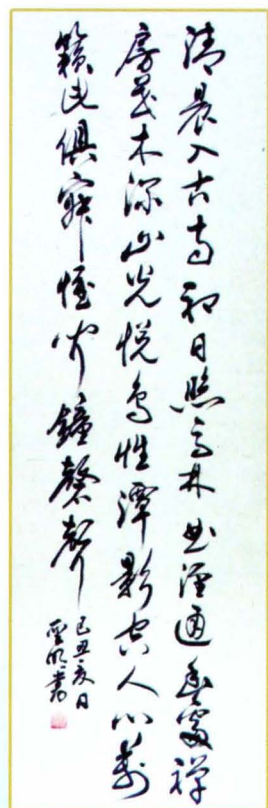 清晨入古寺初日照高林曲径通幽處禪
房花木深山光悦鸟性潭影空人心萬
籁此俱寂惟闻鐘磬聲
己丑夏日